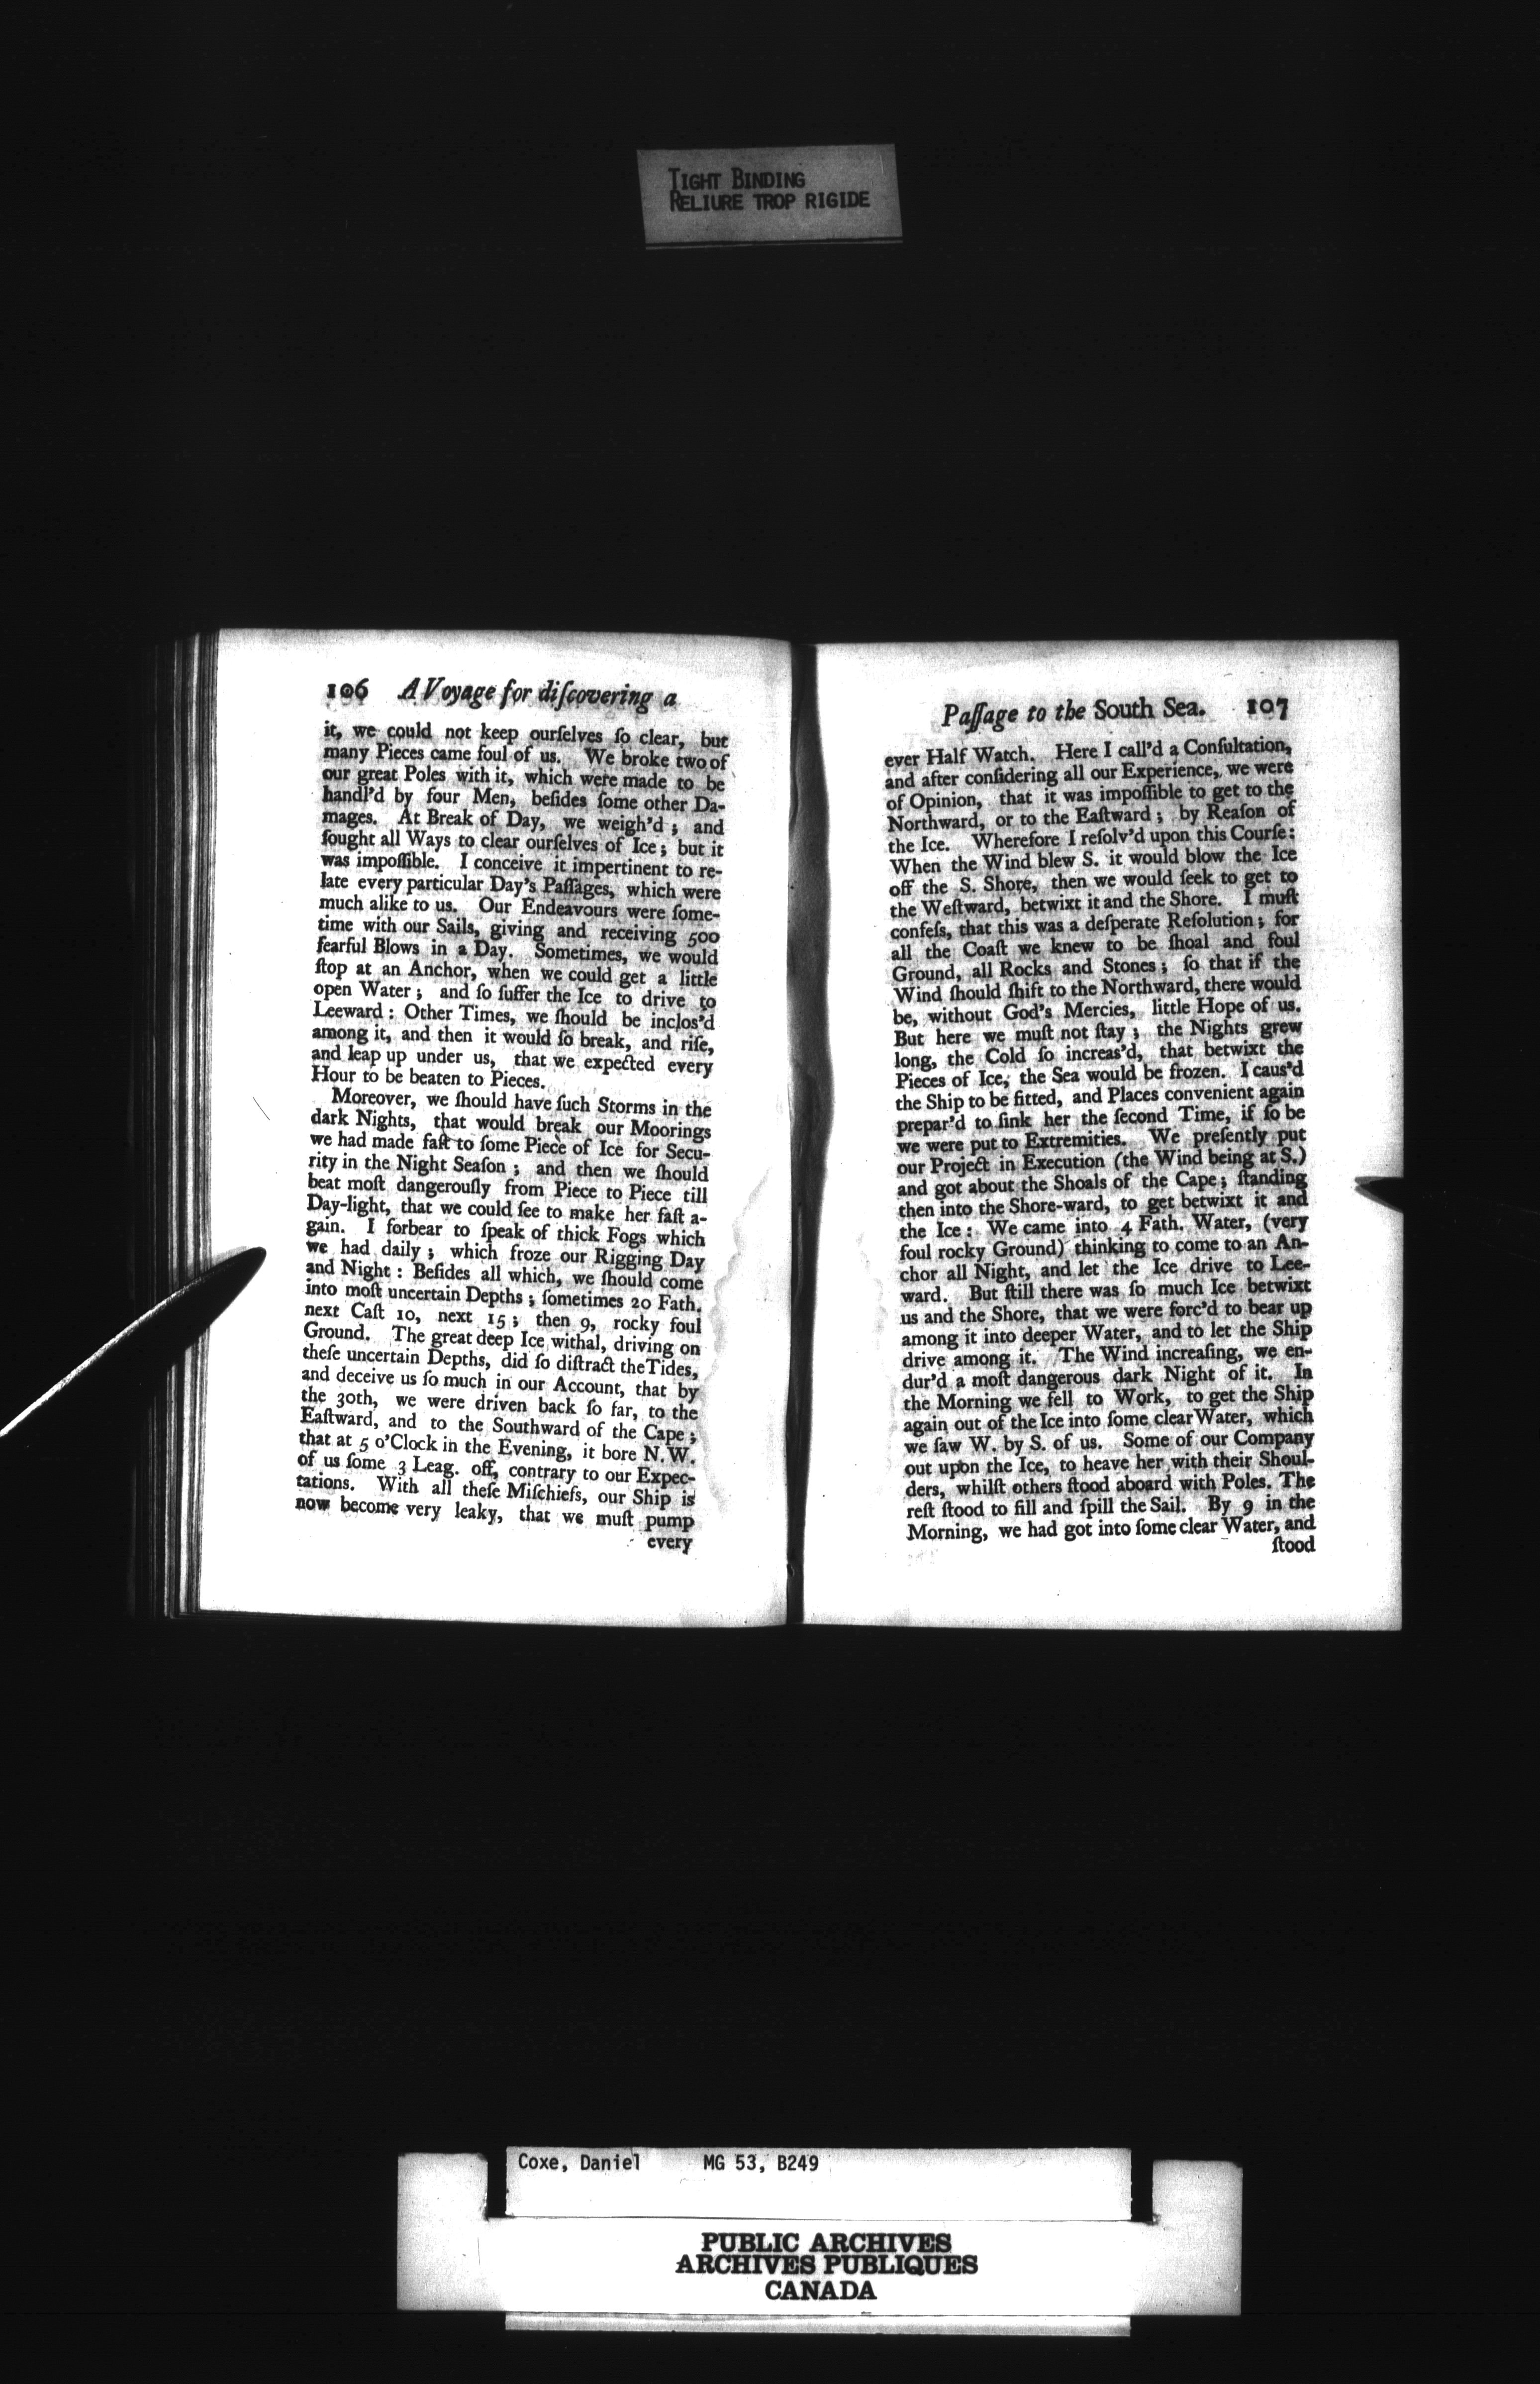 TIGHT BINDING
RELIURE TROP RIGIDE
106 A Voyage for diſcovering a
it, we could not keep ourſelves ſo clear, but
many Pieces came foul of us. We broke two of
our great Poles with it, which were made to be
handl'd by four Men, beſides ſome other Da-
mages. At Break of Day, we weigh'd; and
ſought all Ways to clear ourſelves of Ice; but it
was impoſſible. I conceive it impertinent to re-
late every particular Day's Paſſages, which were
much alike to us. Our Endeavours were ſome-
time with our Sails, giving and receiving 500
fearful Blows in a Day. Sometimes, we would
ſtop at an Anchor, when we could get a little
open Water; and ſo ſuffer the Ice to drive to
Leeward: Other Times, we ſhould be inclos'd
among it, and then it would ſo break, and riſe,
and leap up under us, that we expected every
Hour to be beaten to Pieces.
Moreover, we ſhould have ſuch Storms in the
dark Nights, that would break our Moorings
we had made faſt to ſome Piece of Ice for Secu-
rity in the Night Seaſon; and then we ſhould
beat moſt dangerouſly from Piece to Piece till
Day-light, that we could ſee to make her faſt a-
gain. I forbear to ſpeak of thick Fogs which
we had daily; which froze our Rigging Day
and Night: Beſides all which, we ſhould come
into moſt uncertain Depths; ſometimes 20 Fath.
next Caſt 10, next 15; then 9, rocky foul
Ground. The great deep Ice withal, driving on
theſe uncertain Depths, did ſo diſtract the Tides,
and deceive us ſo much in our Account, that by
the 30th, we were driven back ſo far, to the
Eaſtward, and to the Southward of the Cape;
that at 5 o'Clock in the Evening, it bore N.W.
of us ſome 3 Leag. off, contrary to our Expec-
tations. With all theſe Miſchiefs, our Ship is
now become very leaky, that we muſt pump
every
Paſſage to the South Sea. 107
ever Half Watch. Here I call'd a Conſultation,
and after conſidering all our Experience, we were
of Opinion, that it was impoſſible to get to the
Northward, or to the Eaſtward; by Reaſon of
the Ice. Wherefore I reſolv'd upon this Courſe:
When the Wind blew S. it would blow the Ice
off the S. Shore, then we would ſeek to get to
the Weſtward, betwixt it and the Shore. I muſt
confeſs, that this was a deſperate Reſolution; for
all the Coaſt we knew to be ſhoal and foul
Ground, all Rocks and Stones; ſo that if the
Wind ſhould ſhift to the Northward, there would
be, without God's Mercies, little Hope of us.
But here we muſt not ſtay; the Nights grew
long, the Cold ſo increas'd, that betwixt the
Pieces of Ice, the Sea would be frozen. I caus'd
the Ship to be fitted, and Places convenient again
prepar'd to ſink her the ſecond Time, if ſo be
we were put to Extremities. We preſently put
our Project in Execution (the Wind being at S.)
and got about the Shoals of the Cape; ſtanding
then into the Shore-ward, to get betwixt it and
the Ice: We came into 4 Fath. Water, (very
foul rocky Ground) thinking to come to an An-
chor all Night, and let the Ice drive to Lee-
ward. But ſtill there was ſo much Ice betwixt
us and the Shore, that we were forc'd to bear up
among it into deeper Water, and to let the Ship
drive among it. The Wind increaſing, we en-
dur'd a moſt dangerous dark Night of it. In
the Morning we fell to Work, to get the Ship
again out of the Ice into ſome clear Water, which
we ſaw W. by S. of us. Some of our Company
out upon the Ice, to heave her with their Shoul-
ders, whilſt others ſtood aboard with Poles. The
reſt ſtood to fill and ſpill the Sail. By 9 in the
Morning, we had got into ſome clear Water, and
ſtood
Coxe, Daniel MG 53, B249
PUBLIC ARCHIVES
ARCHIVES PUBLIQUES
CANADA